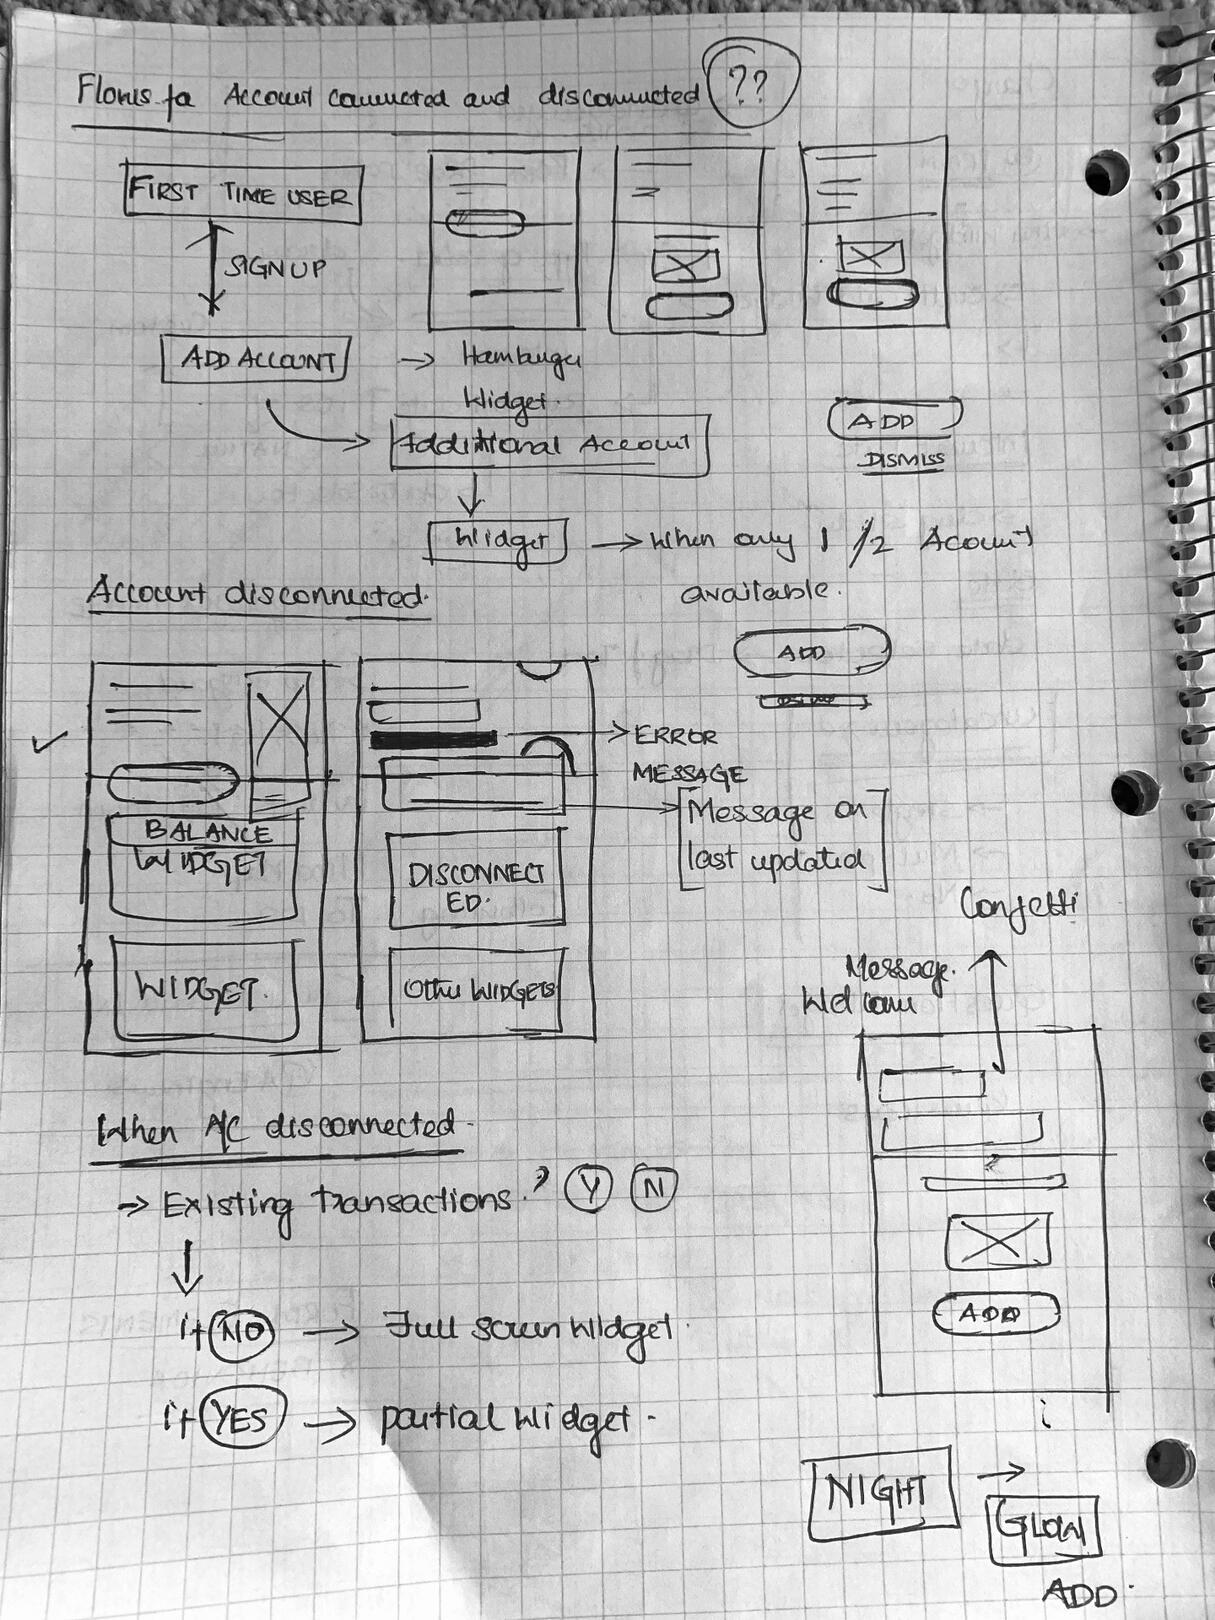 Flows for Account connected and disconnected ??
FIRST TIME USER
SIGN UP
ADD ACCOUNT → Hamburger
Widget.
Additional Account
ADD
DISMISS
Widget → When only 1/2 Acount
available.
Account disconnected.
ADD
ERROR
MESSAGE
Message on
last updated
BALANCE
WIDGET
WIDGET.
DISCONNECT
ED.
Other WIDGETS
Confetti
Message.
Welcome
ADD
When A/C disconnected.
→ Existing transactions? Y N
if NO → Full screen Widget.
if YES → partial Widget.
NIGHT →
ADD.